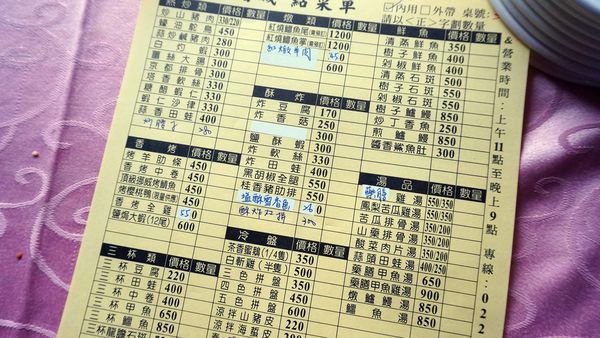 點菜單
內用 外帶 桌號:
請以<正>字劃數量
& 營業時間:上午11點至晚上9點 專線:022
熱炒類 價格 數量
炒山豬肉 330/220
蠔油鴕鳥 450
蒜炒鹹豬肉 250
白灼蝦 300
薑絲大腸 330
京都排骨 300
塔香軟絲 330
糖醋蝦仁 330
蝦仁沙律 330
蒜香田蛙 400
280
香烤 價格 數量
烤羊肋條 450
香烤中卷 450
頂級挪威烤鯖魚 450
烤櫻桃鴨 450
香烤全雞 550
鹽焗大蝦(12尾) 600
三杯類 價格 數量
三杯豆腐 220
三杯田蛙 400
三杯中卷 400
三杯甲魚 650
三杯鱷魚 850
三杯龍膽石斑 850
燉類 價格 數量
紅燒鱷魚尾 1200
紅燒鱷魚掌 1200
600
酥炸 價格 數量
炸豆腐 170
炸香菇 250
鹽酥蝦 300
炸軟絲 330
炸田蛙 400
黑胡椒全雞 550
桂香豬肋排 550
300
冷盤 價格 數量
茶香蜜鵝(1/4隻) 350
白斬雞(半隻) 500
三色拼盤 350
四色拼盤 450
五色拼盤 500
涼拌山豬皮 200
涼拌海蜇皮 200
鮮魚 價格 數量
清蒸鮮魚 350
樹子鮮魚 400
剁椒鮮魚 400
清蒸石斑 500
樹子石斑 500
剁椒石斑 500
炒丁香魚 250
煎鱷鰻 500
醬香鯊魚肚 300
湯品 價格 數量
雞湯 550/350
鳳梨苦瓜雞湯 550/350
苦瓜排骨湯 350/250
山藥排骨湯 350/250
酸菜肉片湯 350/250
蒜頭田蛙湯 400/250
藥膳甲魚湯 650
藥膳甲魚雞湯 900
燉鱸鰻湯 850
鱷魚湯 850